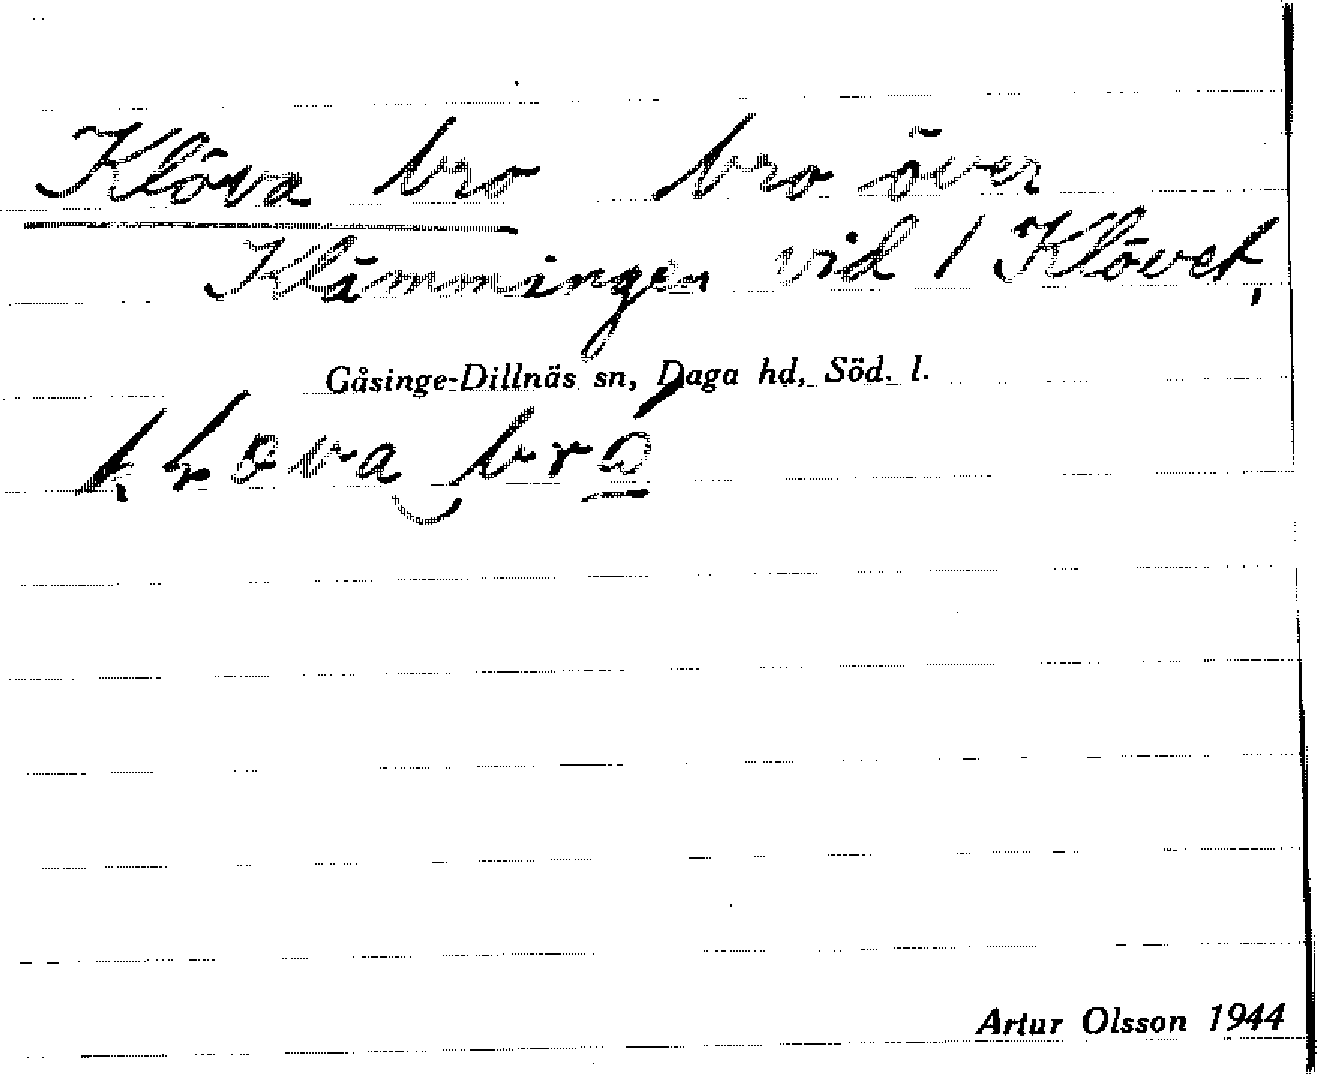 Klöva bro bro över
Klämmingen vid 1 Klövet,
Gåsinge-Dillnäs sn, Daga hd, Söd. l.
Artur Olsson 1944